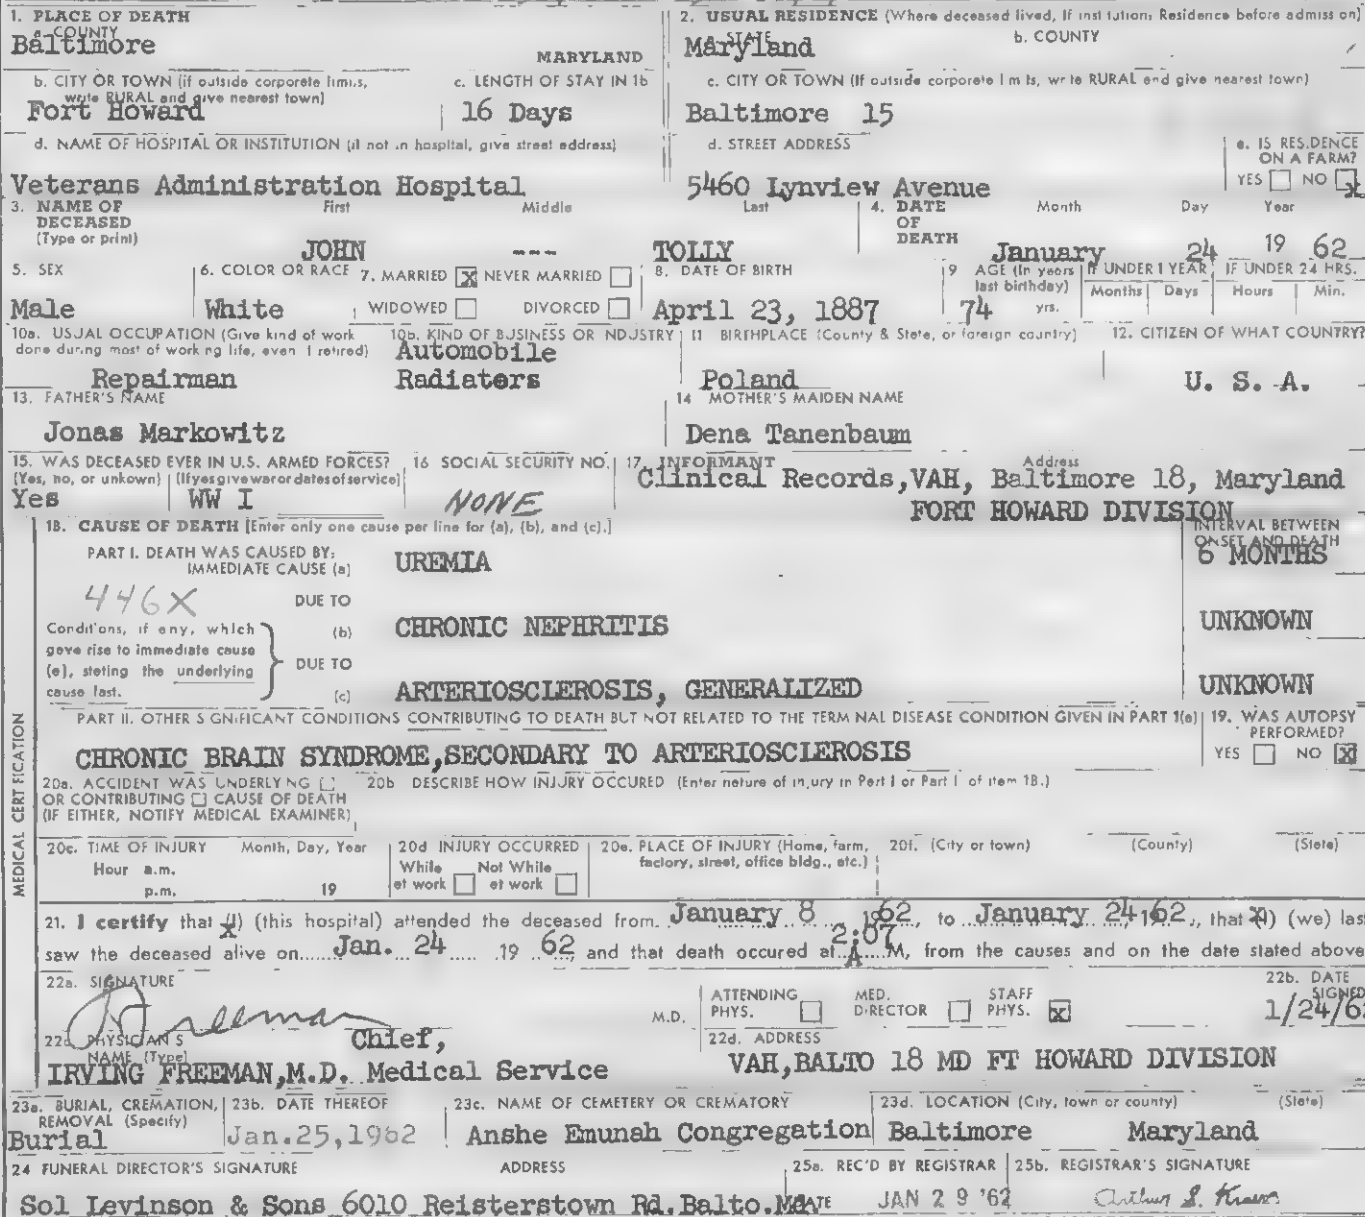 1. PLACE OF DEATH
a. COUNTY
Baltimore
MARYLAND
2. USUAL RESIDENCE (Where deceased lived, If institution: Residence before admission)
a. STATE
Maryland
b. COUNTY
b. CITY OR TOWN (if outside corporate limits, write RURAL and give nearest town)
Fort Howard
c. LENGTH OF STAY IN 1b
16 Days
c. CITY OR TOWN (If outside corporate limits, write RURAL and give nearest town)
Baltimore 15
d. NAME OF HOSPITAL OR INSTITUTION (if not in hospital, give street address)
Veterans Administration Hospital
d. STREET ADDRESS
5460 Lynview Avenue
e. IS RESIDENCE ON A FARM?
YES NO X
3. NAME OF DECEASED (Type or print)
First Middle Last
JOHN --- TOLLY
4. DATE OF DEATH
Month Day Year
January 24 1962
5. SEX
Male
6. COLOR OR RACE
White
7. MARRIED X NEVER MARRIED
WIDOWED DIVORCED
8. DATE OF BIRTH
April 23, 1887
9 AGE (In years last birthday)
74 yrs.
IF UNDER 1 YEAR
Months Days
IF UNDER 24 HRS.
Hours Min.
10a. USUAL OCCUPATION (Give kind of work done during most of working life, even if retired)
Repairman
10b. KIND OF BUSINESS OR INDUSTRY
Automobile
Radiators
11 BIRTHPLACE (County & State, or foreign country)
Poland
12. CITIZEN OF WHAT COUNTRY?
U. S. A.
13. FATHER'S NAME
Jonas Markowitz
14 MOTHER'S MAIDEN NAME
Dena Tanenbaum
15. WAS DECEASED EVER IN U.S. ARMED FORCES?
(Yes, no, or unkown) (If yes give war or dates of service)
Yes WW I
16 SOCIAL SECURITY NO.
NONE
17. INFORMANT Address
Clinical Records,VAH, Baltimore 18, Maryland
FORT HOWARD DIVISION
18. CAUSE OF DEATH [Enter only one cause per line for (a), (b), and (c).]
INTERVAL BETWEEN ONSET AND DEATH
PART I. DEATH WAS CAUSED BY:
IMMEDIATE CAUSE (a) UREMIA 6 MONTHS
446X
DUE TO
(b) CHRONIC NEPHRITIS UNKNOWN
Conditions, if any, which gave rise to immediate cause (a), stating the underlying cause last.
DUE TO
(c) ARTERIOSCLEROSIS, GENERALIZED UNKNOWN
PART II. OTHER SIGNIFICANT CONDITIONS CONTRIBUTING TO DEATH BUT NOT RELATED TO THE TERMINAL DISEASE CONDITION GIVEN IN PART 1(a)
CHRONIC BRAIN SYNDROME,SECONDARY TO ARTERIOSCLEROSIS
19. WAS AUTOPSY PERFORMED?
YES NO X
MEDICAL CERTIFICATION
20a. ACCIDENT WAS UNDERLYING
OR CONTRIBUTING CAUSE OF DEATH
(IF EITHER, NOTIFY MEDICAL EXAMINER)
20b DESCRIBE HOW INJURY OCCURED (Enter nature of injury in Part I or Part II of item 18.)
20c. TIME OF INJURY Month, Day, Year
Hour a.m.
p.m. 19
20d INJURY OCCURRED
While at work Not While at work
20e. PLACE OF INJURY (Home, farm, factory, street, office bldg., etc.)
20f. (City or town) (County) (State)
21. I certify that (I) (this hospital) attended the deceased from January 8 1962, to January 24, 1962, that (I) (we) last
saw the deceased alive on Jan. 24 19 62, and that death occured at 2:07 A M, from the causes and on the date stated above
22a. SIGNATURE
I Freeman
M.D.
ATTENDING PHYS. MED. DIRECTOR STAFF PHYS. X
22b. DATE SIGNED
1/24/62
22c. PHYSICIAN'S NAME (Type)
IRVING FREEMAN,M.D. Chief, Medical Service
22d. ADDRESS
VAH,BALTO 18 MD FT HOWARD DIVISION
23a. BURIAL, CREMATION, REMOVAL (Specify)
Burial
23b. DATE THEREOF
Jan.25,1962
23c. NAME OF CEMETERY OR CREMATORY
Anshe Emunah Congregation
23d. LOCATION (City, town or county) (State)
Baltimore Maryland
24 FUNERAL DIRECTOR'S SIGNATURE ADDRESS
Sol Levinson & Sons 6010 Reisterstown Rd.Balto.Md
25a. REC'D BY REGISTRAR
DATE JAN 29 '62
25b. REGISTRAR'S SIGNATURE
Arthur S. Kraus